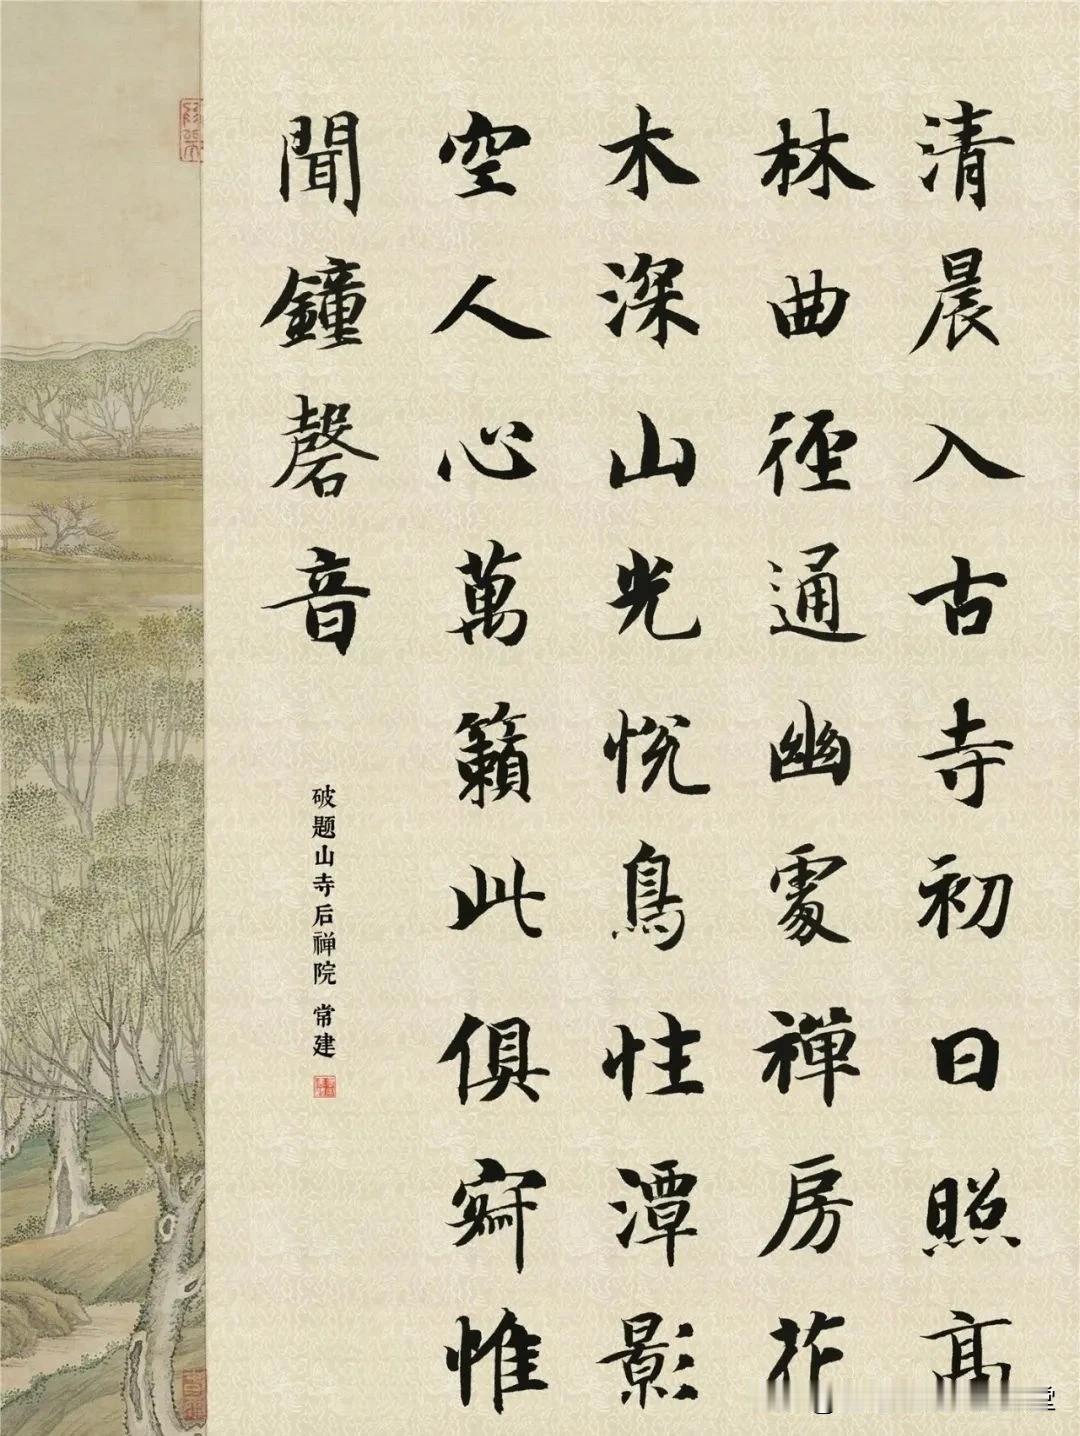 清晨入古寺初日照高
林曲徑通幽處禪房花
木深山光悅鳥性潭影
空人心萬籟此俱寂惟
聞鐘磬音
破题山寺后禅院 常建